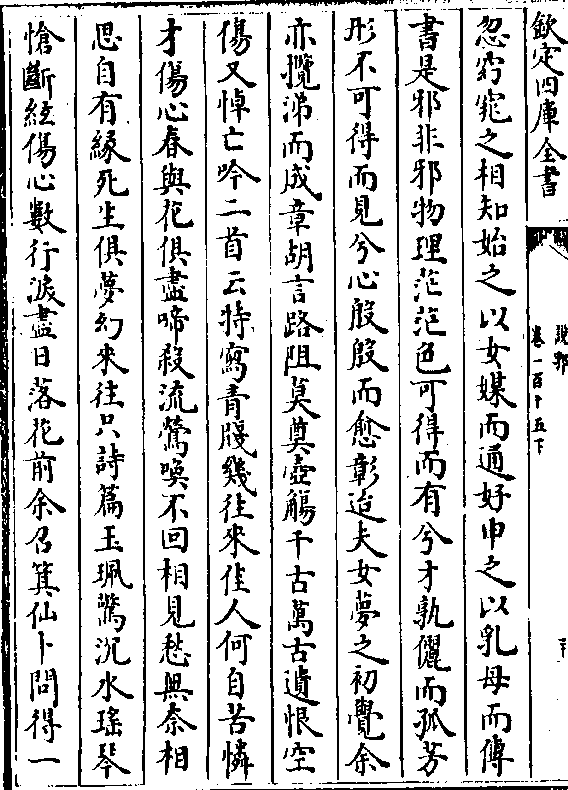 欽定四庫全書
說郛
卷一百十五下
忽窈窕之相知始之以女媒而通好申之以乳母而傳
書是邪非邪物理茫茫色可得而有兮才孰儷而孤芳
形不可得而見兮心殷殷而愈彰迨夫女夢之初覺余
亦攬涕而成章胡言路阻莫奠壺觴千古萬古遺恨空
傷又悼亡吟二首云特寫青牋幾往來佳人何自苦憐
才傷心春與花俱盡啼殺流鶯喚不回相見愁無奈相
思自有緣死生俱夢幻來往只詩篇玉珮驚沉水瑤琴
愴斷絃傷心數行淚盡日落花前余召箕仙卜問得一